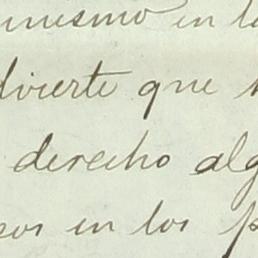 mismo en l
dvierte que
derecho alg
sos en los p